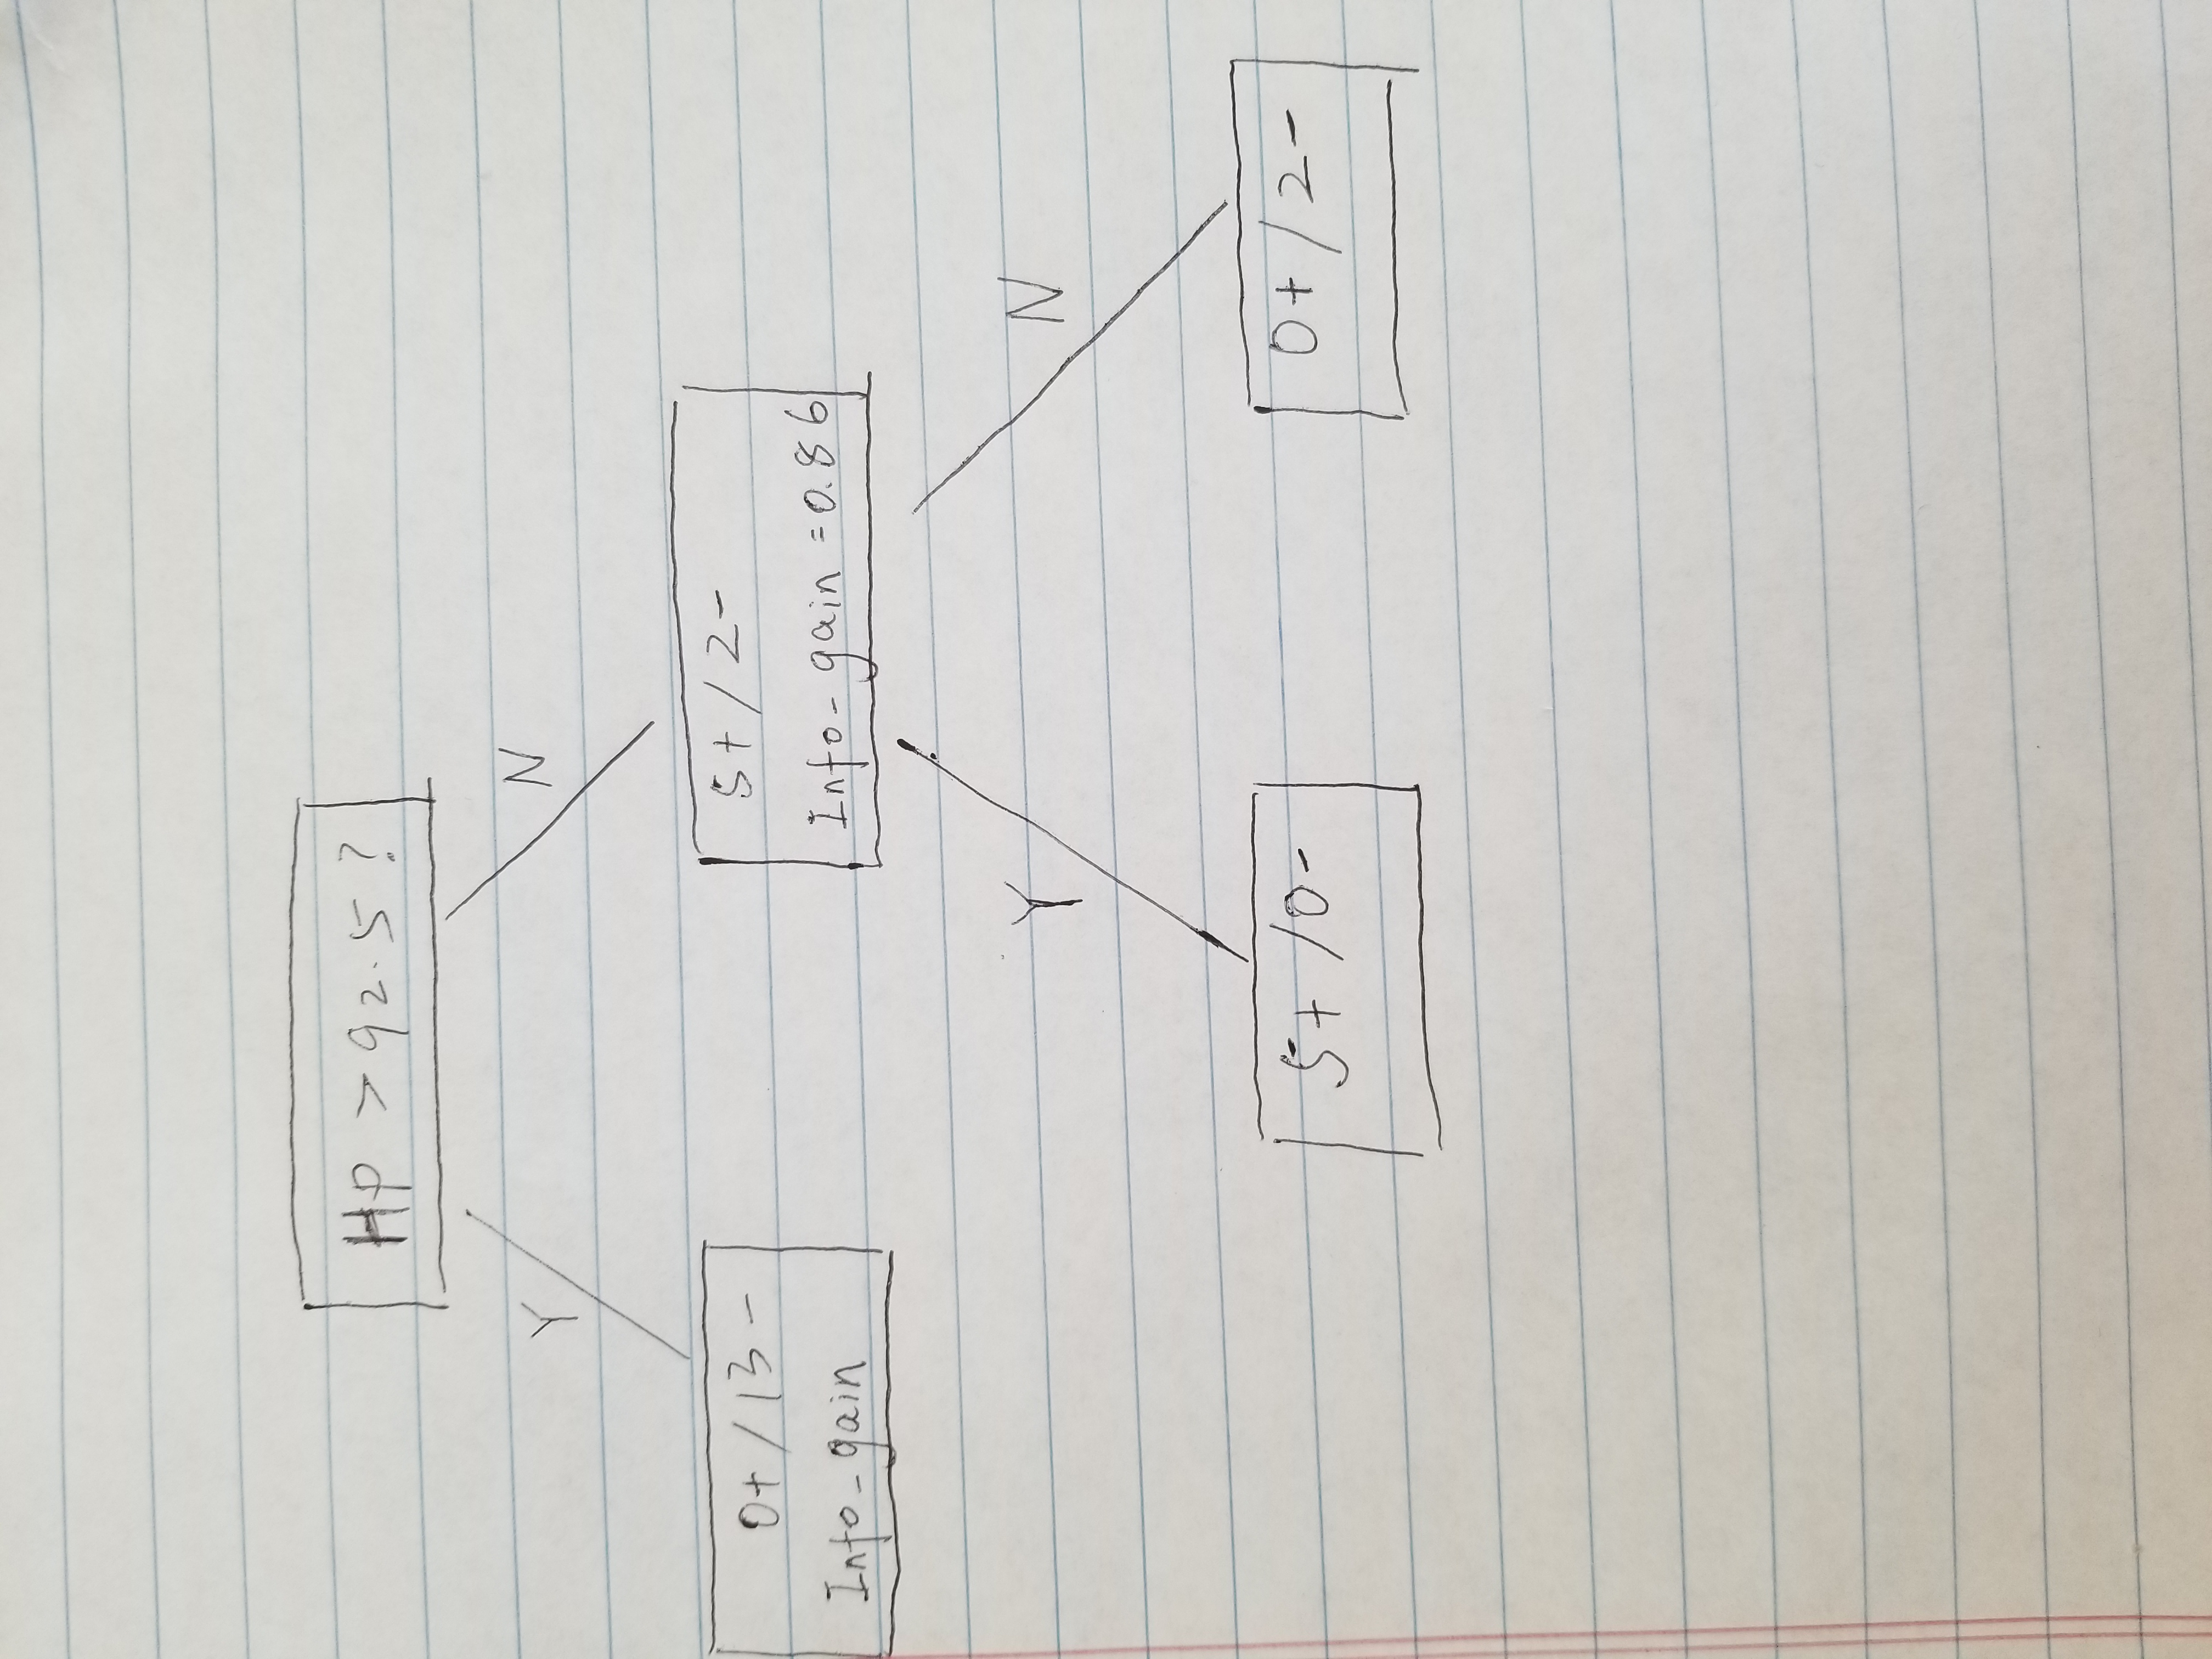 Hp > 92.5 ?
Y
N
0+ / 13 -
Info_gain
5+ / 2-
Info_gain = 0.86
Y
N
5+ / 0-
0+ / 2-